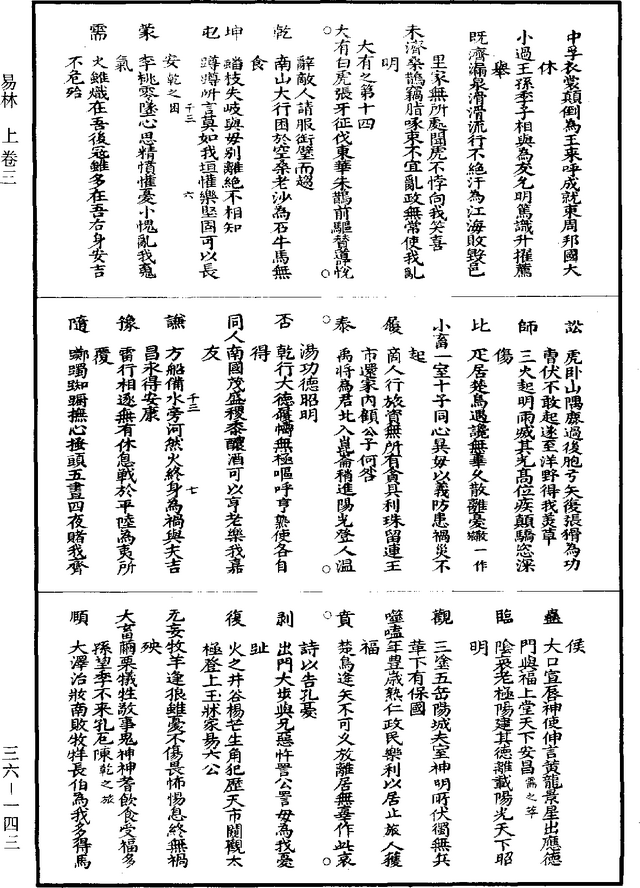 中孚衣裳顛倒為王來呼成就東周邦國大
休
小過王孫季子相與為友允明篤識升擢薦
舉
既濟漏泉滑滑流行不絕汙為江海敗毀邑
里家無所處聞虎不悖向我笑喜
未濟桑鵲竊脂啄束不宜亂政無常使我亂
明
大有之第十四
大有白虎張牙征伐東華朱鵲前驅贊導悅
辭敵人請服銜璧而趨
乾 南山大行困於空桑老沙為石牛馬無
食
坤 蹈枝失岐與母別離絕不相知
屯 蹲蹲所言莫如我垣懽樂堅固可以長
安乾之困
蒙 李桃零墜心思精憒懽憂小愧亂我魂
氣
需 火雖熾在吾後寇雖多在吾右身安吉
不危殆
訟 虎臥山隅鹿過後胸弓矢後張猾為功
曹伏不敢起遂至洋野得我美草
師 三火起明雨滅其光高位疾顛驕恣深
傷
比 疋居楚鳥遇讒無辜久散離憂
小畜一室十子同心異母以義防患禍災不
起
履 商人行旅資無所有貪貝利珠留連王
市還家內顧公子何咎
泰 禹將為君北入崑崙稍進陽光登人溫
湯功德昭明
否 乾行大德覆幬無極嘔呼亨熟使各自
得
同人南國茂盛稷黍釀酒可以享老樂我嘉
友
謙 方船備水旁河然火終身為禍與夫吉
昌永得安康
豫 雷行相逐無有休息戰於平陸為夷所
覆
隨 躑躅踟躕撫心搔頭五晝四夜睹我齊
侯
蠱 大口宣唇神使伸言黃龍景星出應德
門與福上堂天下安昌需之萃
臨 陰衰老極陽建其德離載陽光天下昭
明
觀 三塗五岳陽城太室神明所伏獨無兵
革下有保國
噬嗑年豊歲熟仁政民樂利以居止旅人獲
福
賁 楚鳥逢矢不可久放離居無辜作此哀
詩以告孔憂
剝 出門大步與兄惡忤詈公詈母為我憂
趾
復 火之井谷楊芒生角犯歷天市闚觀太
極登上玉牀家易六公
无妄牧羊逢狼雖憂不傷畏怖惕息終無禍
殃
大畜繭栗犧牲敬事鬼神神耆飲食受福多
孫望季不來孔厄陳乾之旅
頤 大澤治妝南販牧牂長伯為我多得馬
易林 上 卷三
三六－一四三